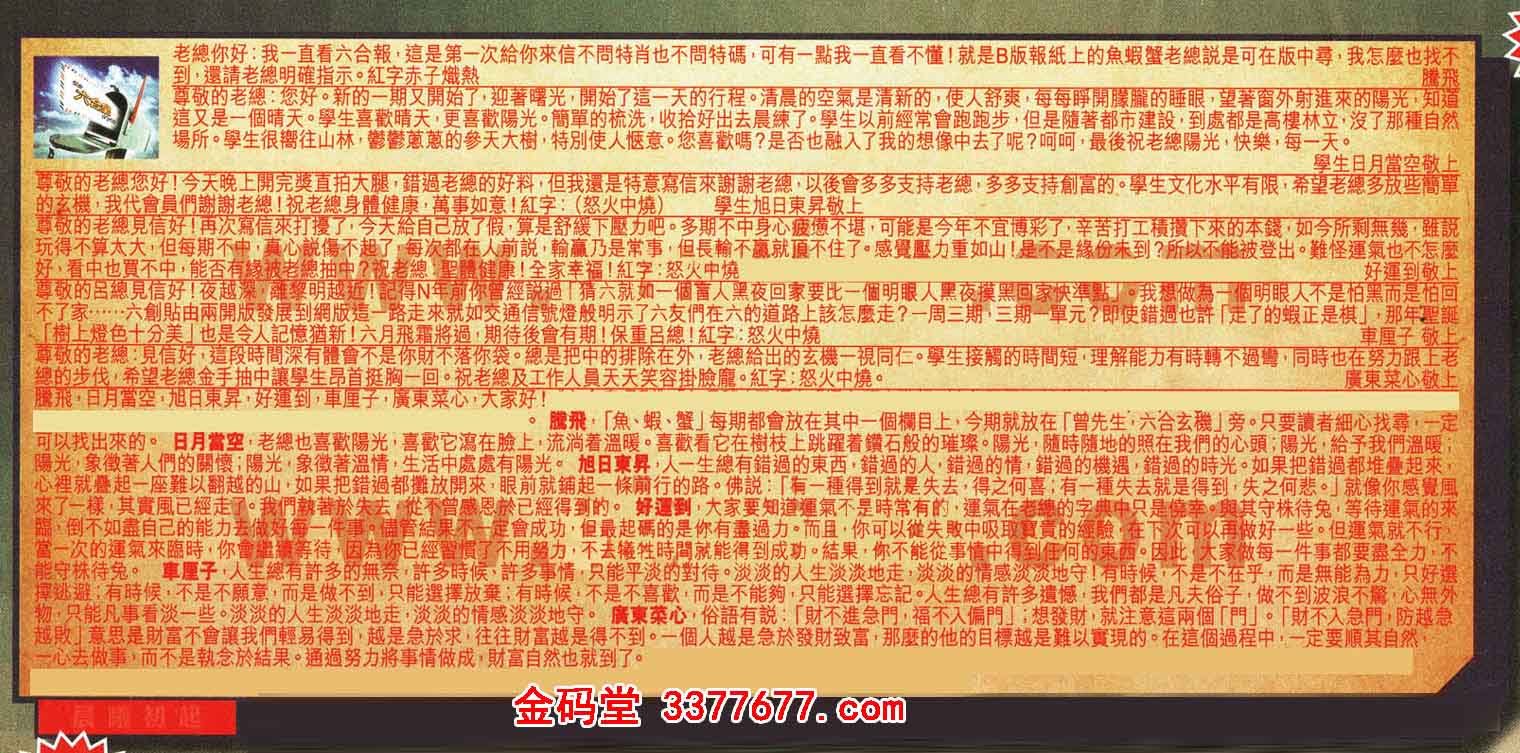 老總你好：我一直看六合報，這是第一次給你來信不問特肖也不問特碼，可有一點我一直看不懂！就是B版報紙上的魚蝦蟹老總說是可在版中尋，我怎麼也找不
到，還請老總明確指示。紅字赤子熾熱 騰飛
尊敬的老總：您好。新的一期又開始了，迎著曙光，開始了這一天的行程。清晨的空氣是清新的，使人舒爽，每每睜開朦朧的睡眼，望著窗外射進來的陽光，知道
這又是一個晴天。學生喜歡晴天，更喜歡陽光。簡單的梳洗，收拾好出去晨練了。學生以前經常會跑跑步，但是隨著都市建設，到處都是高樓林立，沒了那種自然
場所。學生很嚮往山林，鬱鬱蔥蔥的參天大樹，特別使人愜意。您喜歡嗎？是否也融入了我的想像中去了呢？呵呵，最後祝老總陽光，快樂，每一天。
學生日月當空敬上
尊敬的老總您好！今天晚上開完獎直拍大腿，錯過老總的好料，但我還是特意寫信來謝謝老總，以後會多多支持老總，多多支持創富的。學生文化水平有限，希望老總多放些簡單
的玄機，我代會員們謝謝老總！祝老總身體健康，萬事如意！紅字：（怒火中燒） 學生旭日東昇敬上
尊敬的老總見信好！再次寫信來打擾了，今天給自己放了假，算是舒緩下壓力吧。多期不中身心疲憊不堪，可能是今年不宜博彩了，辛苦打工積攢下來的本錢，如今所剩無幾，雖説
玩得不算太大，但每期不中，真心説傷不起了，每次都在人前說，輸贏乃是常事，但長輸不贏就頂不住了。感覺壓力重如山！是不是緣份未到？所以不能被登出。難怪運氣也不怎麼
好，看中也買不中，能否有緣被老總抽中？祝老總：聖體健康！全家幸福！紅字：怒火中燒 好運到敬上
尊敬的呂總見信好！夜越深，離黎明越近，記得N年前你曾經説過「猜六就如一個盲人黑夜回家要比一個明眼人黑夜摸黑回家快準點」。我想做為一個明眼人不是怕黑而是怕回
不了家……六創貼由兩開版發展到網版這一路走來就如交通信號燈般明示了六友們在六的道路上該怎麼走？一周三期，三期一單元？即使錯過也許「走了的蝦正是棋」，那年聖誕
「樹上燈色十分美」也是令人記憶猶新！六月飛霜將過，期待後會有期！保重呂總！紅字：怒火中燒 車厘子 敬上
尊敬的老總：見信好，這段時間深有體會不是你財不落你袋。總是把中的排除在外，老總給出的玄機一視同仁。學生接觸的時間短，理解能力有時轉不過彎，同時也在努力跟上老
總的步伐，希望老總金手抽中讓學生昂首挺胸一回。祝老總及工作人員天天笑容掛臉龐。紅字：怒火中燒。 廣東菜心敬上
騰飛，日月當空，旭日東昇，好運到，車厘子，廣東菜心，大家好！
。 騰飛，「魚、蝦、蟹」每期都會放在其中一個欄目上，今期就放在「曾先生，六合玄機」旁。只要讀者細心找尋，一定
可以找出來的。 日月當空，老總也喜歡陽光，喜歡它瀉在臉上，流淌着溫暖。喜歡看它在樹枝上跳躍着鑽石般的璀璨。陽光，隨時隨地的照在我們的心頭；陽光，給予我們溫暖；
陽光，象徵著人們的關懷；陽光，象徵著溫情，生活中處處有陽光。 旭日東昇，人一生總有錯過的東西，錯過的人，錯過的情，錯過的機遇，錯過的時光。如果把錯過都堆疊起來，
心裡就疊起一座難以翻越的山，如果把錯過都攤放開來，眼前就鋪起一條前行的路。佛說：「有一種得到就是失去，得之何喜；有一種失去就是得到，失之何悲。」就像你感覺風
來了一樣，其實風已經走了。我們執著於失去，從不曾感恩於已經得到的。 好運到，大家要知道運氣不是時常有的，運氣在老總的字典中只是僥幸。與其守株待兔，等待運氣的來
臨，倒不如盡自己的能力去做好每一件事，儘管結果不一定會成功，但最起碼的是你有盡過力。而且，你可以從失敗中吸取寶貴的經驗，在下次可以再做好一些。但運氣就不行，
當一次的運氣來臨時，你會繼續等待，因為你已經習慣了不用努力，不去犧牲時間就能得到成功。結果，你不能從事情中得到任何的東西。因此，大家做每一件事都要盡全力，不
能守株待兔。 車厘子，人生總有許多的無奈，許多時候，許多事情，只能平淡的對待。淡淡的人生淡淡地走，淡淡的情感淡淡地守！有時候，不是不在乎，而是無能為力，只好選
擇逃避；有時候，不是不願意，而是做不到，只能選擇放棄；有時候，不是不喜歡，而是不能夠，只能選擇忘記。人生總有許多遺憾，我們都是凡夫俗子，做不到波浪不驚，心無外
物，只能凡事看淡一些。淡淡的人生淡淡地走，淡淡的情感淡淡地守。 廣東菜心，俗語有説：「財不進急門，福不入偏門」；想發財，就注意這兩個「門」。「財不入急門，防越急
越敗」意思是財富不會讓我們輕易得到，越是急於求，往往財富越是得不到。一個人越是急於發財致富，那麼的他的目標越是難以實現的。在這個過程中，一定要順其自然，
一心去做事，而不是執念於結果。通過努力將事情做成，財富自然也就到了。
金码堂 3377677.com